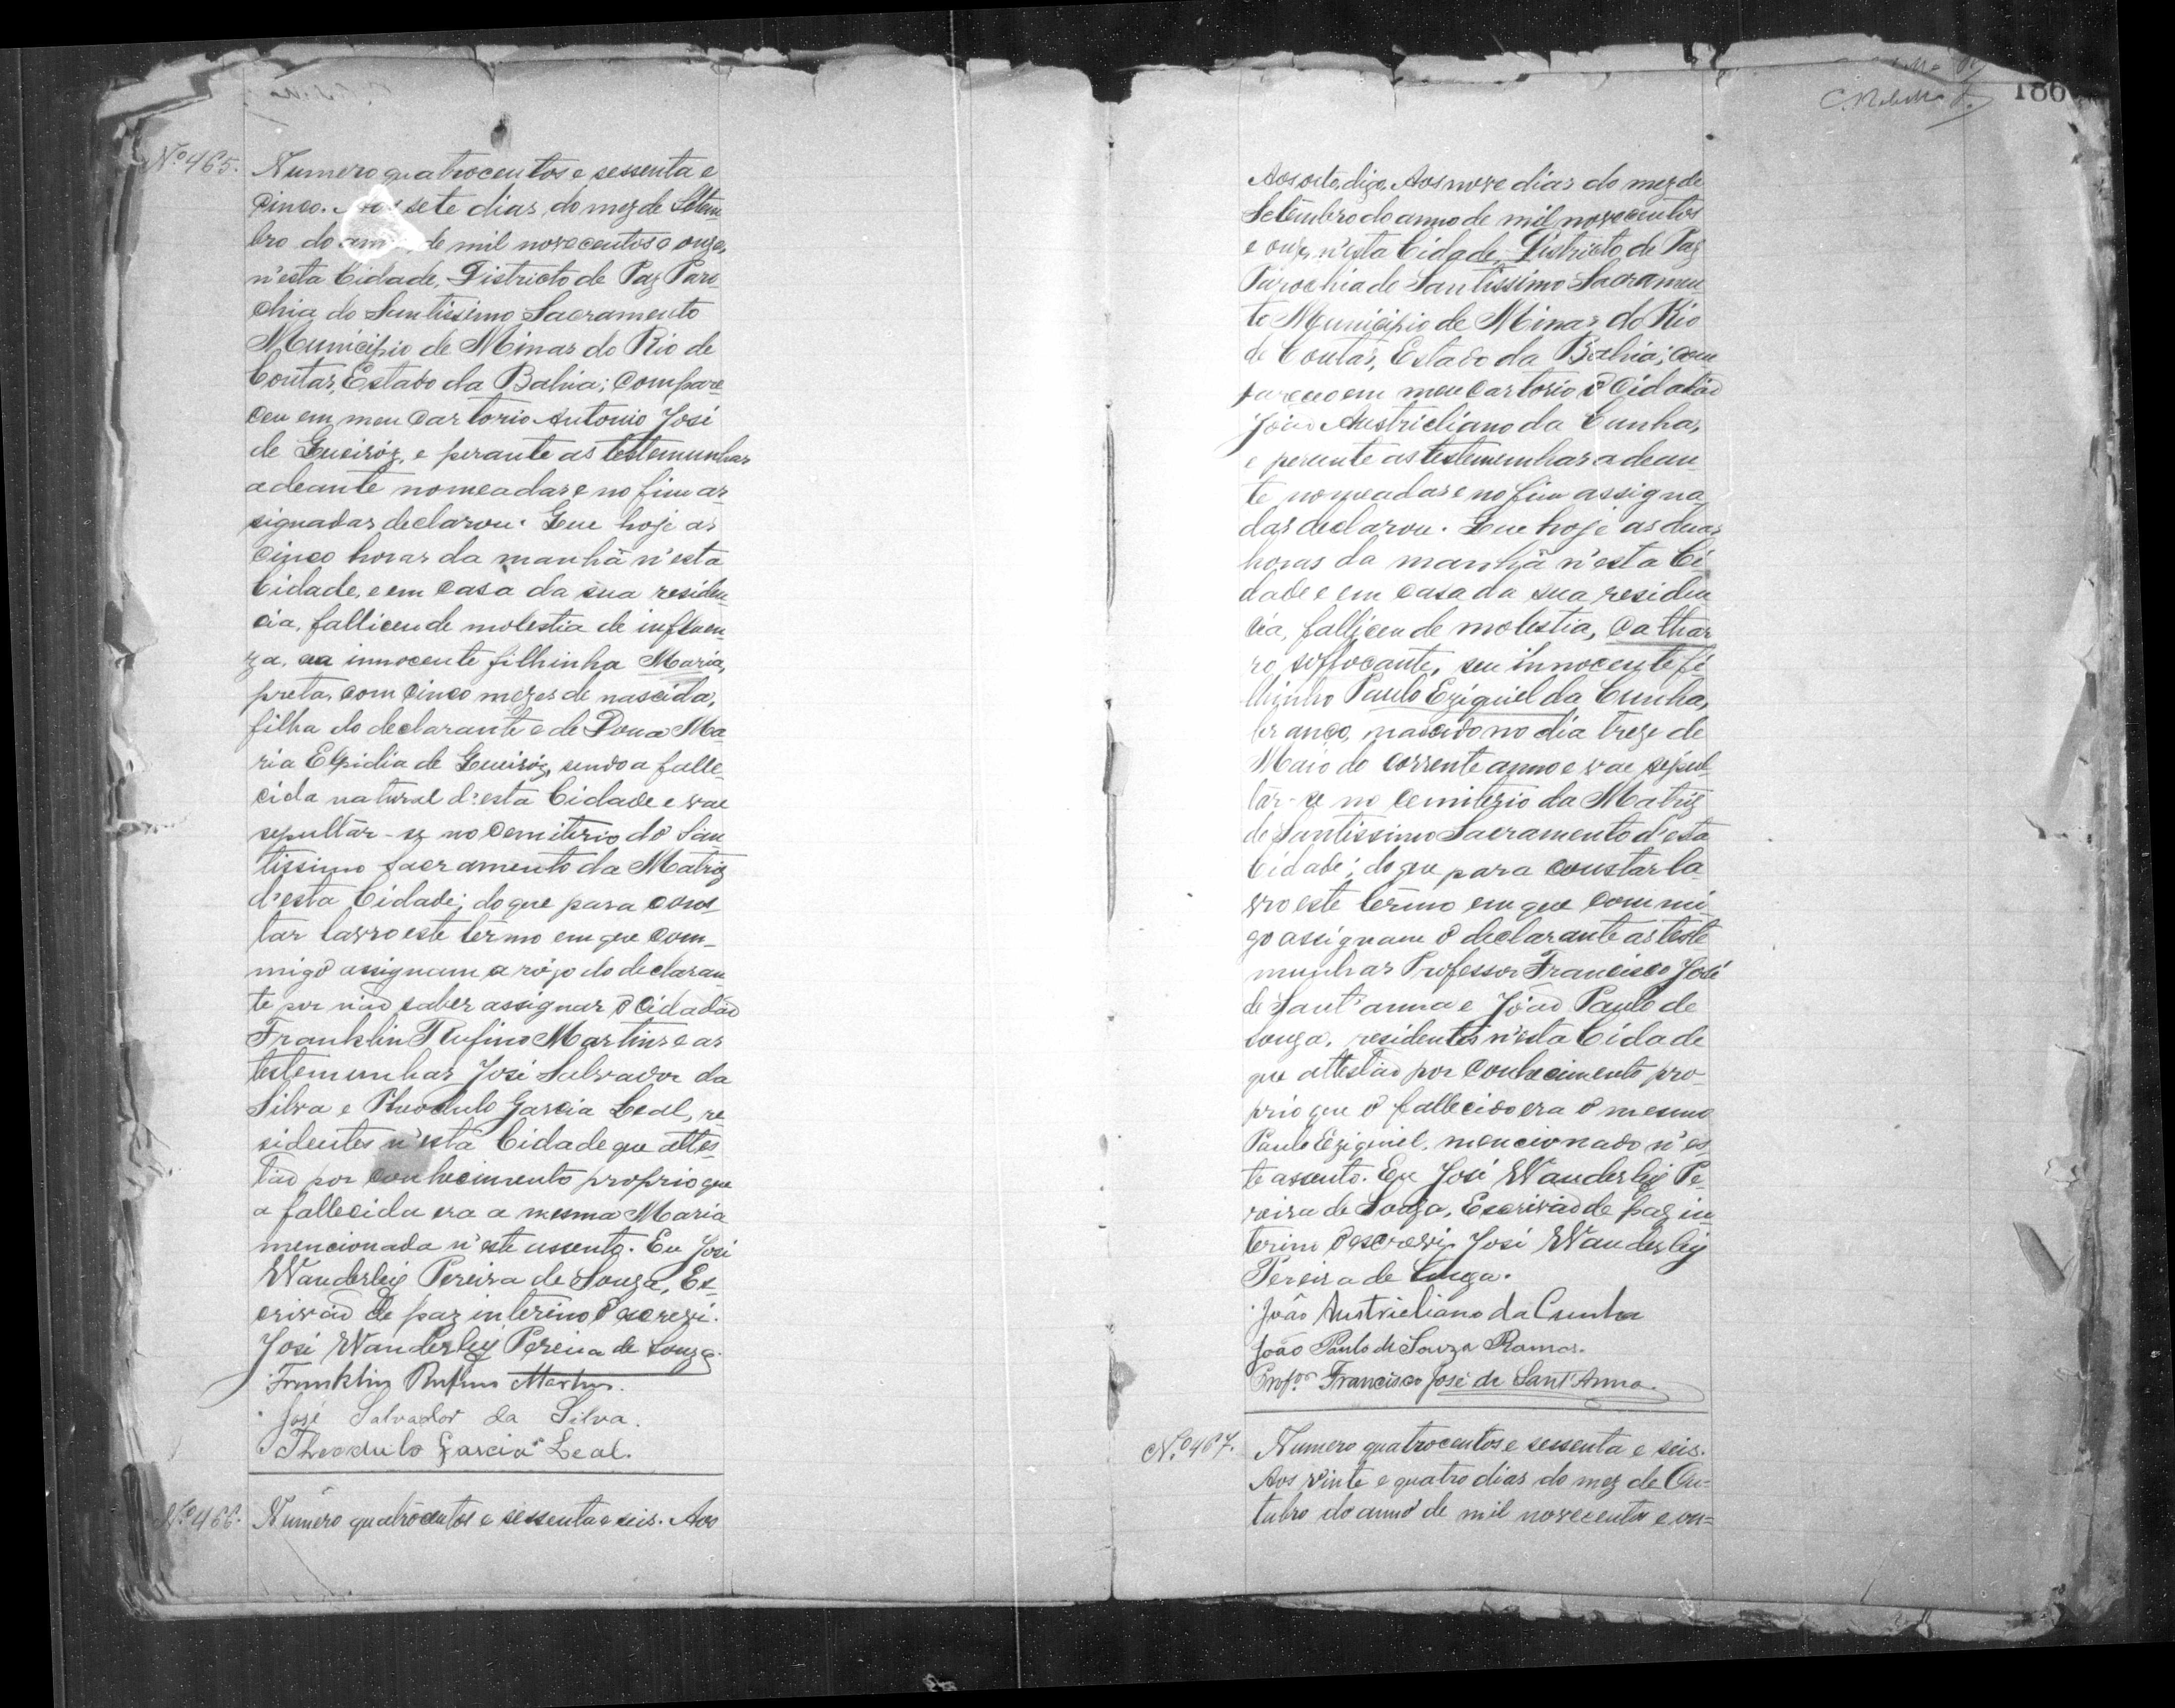 Nº 465.
Numero quatrocentos e sessenta e
cinco. Aos sete dias do mez de Setem
bro do anno de mil novecentos e onze,
n'esta Cidade, Districto de Paz Paro
chia do Santissimo Sacramento
Municipio de Minas do Rio de
Contas, Estado da Bahia; compare
ceu em meu Cartorio Antonio José
de Queiróz, e perante as testemunhas
adeante nomeadas e no fim as
signadas declarou. Que hoje as
cinco horas da manhã n'esta
Cidade, e em casa da sua residen
cia, falliceu de molestia de influen
za, a innocente filhinha Maria,
preta, com cinco mezes de nascida,
filha do declarante e de Dona Ma
ria Elpidia de Queiróz, sendo a falle
cida natural d'esta Cidade e vae
sepultar-se no Cemiterio do San
tissimo Sacramento da Matriz
d'esta Cidade; do que para cons
tar lavro este têrmo em que com-
migo assignam a rôgo do declaran
te por não saber assignar o Cidadão
Franklin Rufino Martins e as
testemunhas José Salvador da
Silva e Theodulo Garcia Leal, re
sidentes n'esta Cidade que attes
tão por conhecimento proprio que
a fallecida era a mesma Maria
mencionada n'este assento. Eu José
Wanderley Pereira de Souza, Es
crivão de paz interino o escrevi.
José Wanderley Pereira de Souza.
Franklin Rufino Martins.
José Salvador da Silva.
Theodulo Garcia Leal.
Nº 466.
Numero quatrocentos e sessenta e seis. Aos
186
Aos oito, digo, Aos nove dias do mez de
Setembro do anno de mil novecentos
e onze, n'esta Cidade, Districto de Paz
Parochia do Santissimo Sacramen
to Municipio de Minas do Rio
de Contas, Estado da Bahia; com
pareceo em meu Cartorio o Cidadão
João Austricliano da Cunha,
e perante as testemunhas adean
te nomeadas e no fim assigna
das declarou. Que hoje as duas
horas da manhã n'esta Ci
dade e em casa da sua residen
cia, falliceu de molestia, Cathar
ro soffocante, seu innocente fi
lhinho Paulo Eziquiel da Cunha,
branco, nascido no dia treze de
Maio do corrente anno e vae sepul
tar-se no Cemiterio da Matriz
do Santissimo Sacramento d'esta
Cidade; do que para constar la
vro este têrmo em que commi
go assignam o declarante as teste
munhas Professor Francisco José
de Sant'anna e João Paulo de
Souza, residentes n'esta Cidade
que attestão por conhecimento pro-
prio que o fallecido era o mesmo
Paulo Eziquiel, mencionado n'es
te assento. Eu José Wanderley Pe-
reira de Souza, Escrivão de paz in-
terino o escrevi. José Wanderley
Pereira de Souza.
João Austricliano da Cunha
João Paulo de Souza Ramos.
Profor Francisco José de Sant'Anna.
Nº 467.
Numero quatrocentos e sessenta e seis.
Aos vinte e quatro dias do mez de Ou=
tubro do anno de mil novecentos e on=